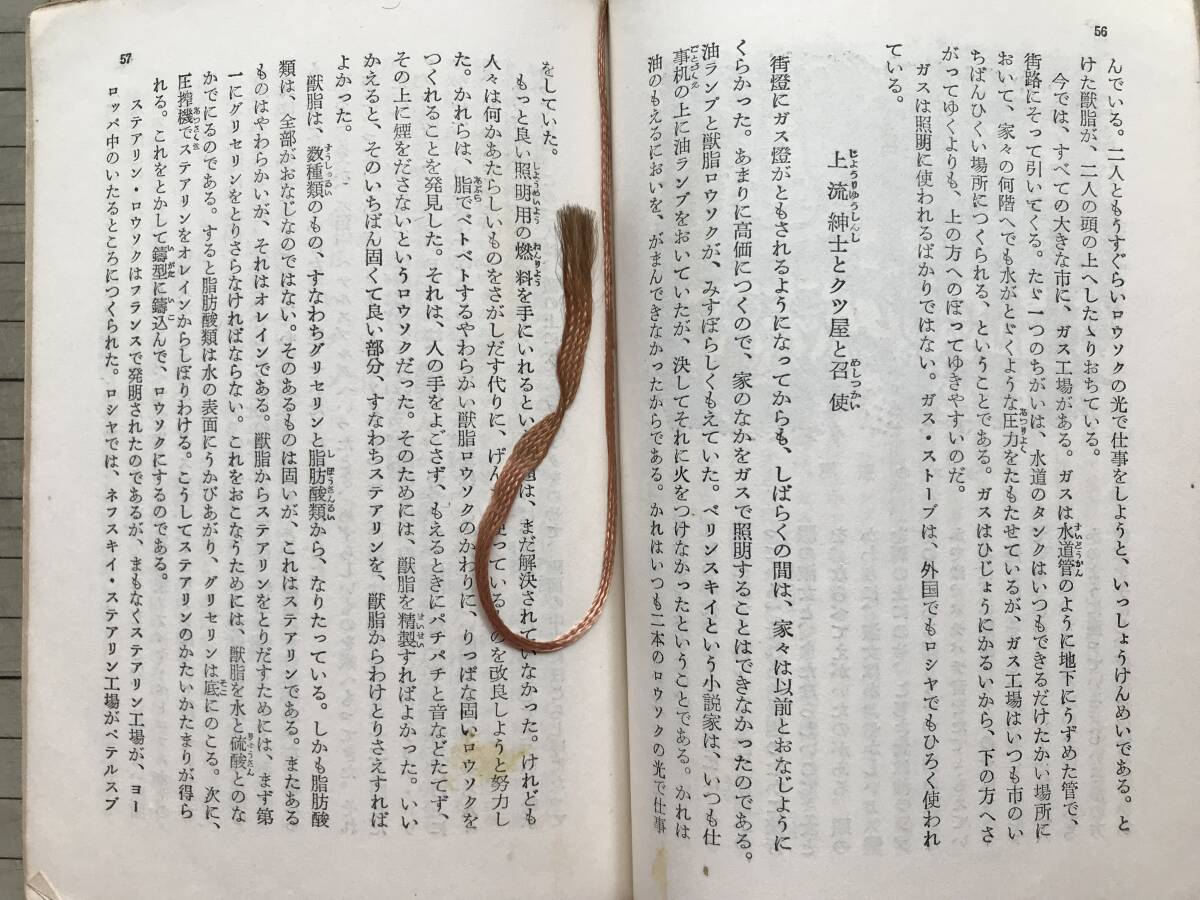 56
んでいる。二人ともうすぐらいロウソクの光で仕事をしようと、いっしょうけんめいである。と
けた獣脂が、二人の頭の上へしたゝりおちている。
今では、すべての大きな市に、ガス工場がある。ガスは水道管のように地下にうずめた管で、
街路にそって引いてくる。たゞ一つのちがいは、水道のタンクはいつもできるだけたかい場所に
おいて、家々の何階へでも水がとゞくような圧力をたもたせているが、ガス工場はいつも市のい
ちばんひくい場所につくられる、ということである。ガスはひじょうにかるいから、下の方へさ
がってゆくよりも、上の方へのぼってゆきやすいのだ。
ガスは照明に使われるばかりではない。ガス・ストーブは、外国でもロシヤでもひろく使われ
ている。
上流紳士とクツ屋と召使
街燈にガス燈がともされるようになってからも、しばらくの間は、家々は以前とおなじように
くらかった。あまりに高価につくので、家のなかをガスで照明することはできなかったのである。
油ランプと獣脂ロウソクが、みすぼらしくもえていた。ベリンスキイという小説家は、いつも仕
事机の上に油ランプをおいていたが、決してそれに火をつけなかったということである。かれは
油のもえるにおいを、がまんできなかったからである。かれはいつも二本のロウソクの光で仕事
57
をしていた。
もっと良い照明用の燃料を手にいれるとい は、まだ解決されていなかった。けれども
人々は何かあたらしいものをさがしだす代りに、げん っている のを改良しようと努力し
た。かれらは、脂でベトベトするやわらかい獣脂ロウソクのかわりに、りっぱな固いロウソクを
つくれることを発見した。それは、人の手をよごさず、もえるときにパチパチと音などたてず、
その上に煙をださないというロウソクだった。そのためには、獣脂を精製すればよかった。いい
かえると、そのいちばん固くて良い部分、すなわちステアリンを、獣脂からわけとりさえすれば
よかった。
獣脂は、数種類のもの、すなわちグリセリンと脂肪酸類から、なりたっている。しかも脂肪酸
類は、全部がおなじなのではない。そのあるものは固いが、これはステアリンである。またある
ものはやわらかいが、それはオレインである。獣脂からステアリンをとりだすためには、まず第
一にグリセリンをとりさらなければならない。これをおこなうためには、獣脂を水と硫酸とのな
かでにるのである。すると脂肪酸類は水の表面にうかびあがり、グリセリンは底にのこる。次に、
圧搾機でステアリンをオレインからしぼりわける。こうしてステアリンのかたいかたまりが得ら
れる。これをとかして鋳型に鋳込んで、ロウソクにするのである。
ステアリン・ロウソクはフランスで発明されたのであるが、まもなくステアリン工場が、ヨー
ロッパ中のいたるところにつくられた。ロシヤでは、ネフスキイ・ステアリン工場がペテルスブ